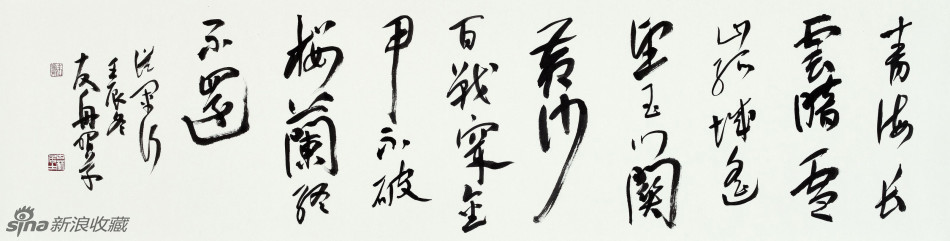 青海长
雲暗雪
山孤城遥
望玉门關
黄沙
百戰穿金
甲不破
楼蘭终
不還
從軍行
壬辰冬
友舟
sina新浪收藏